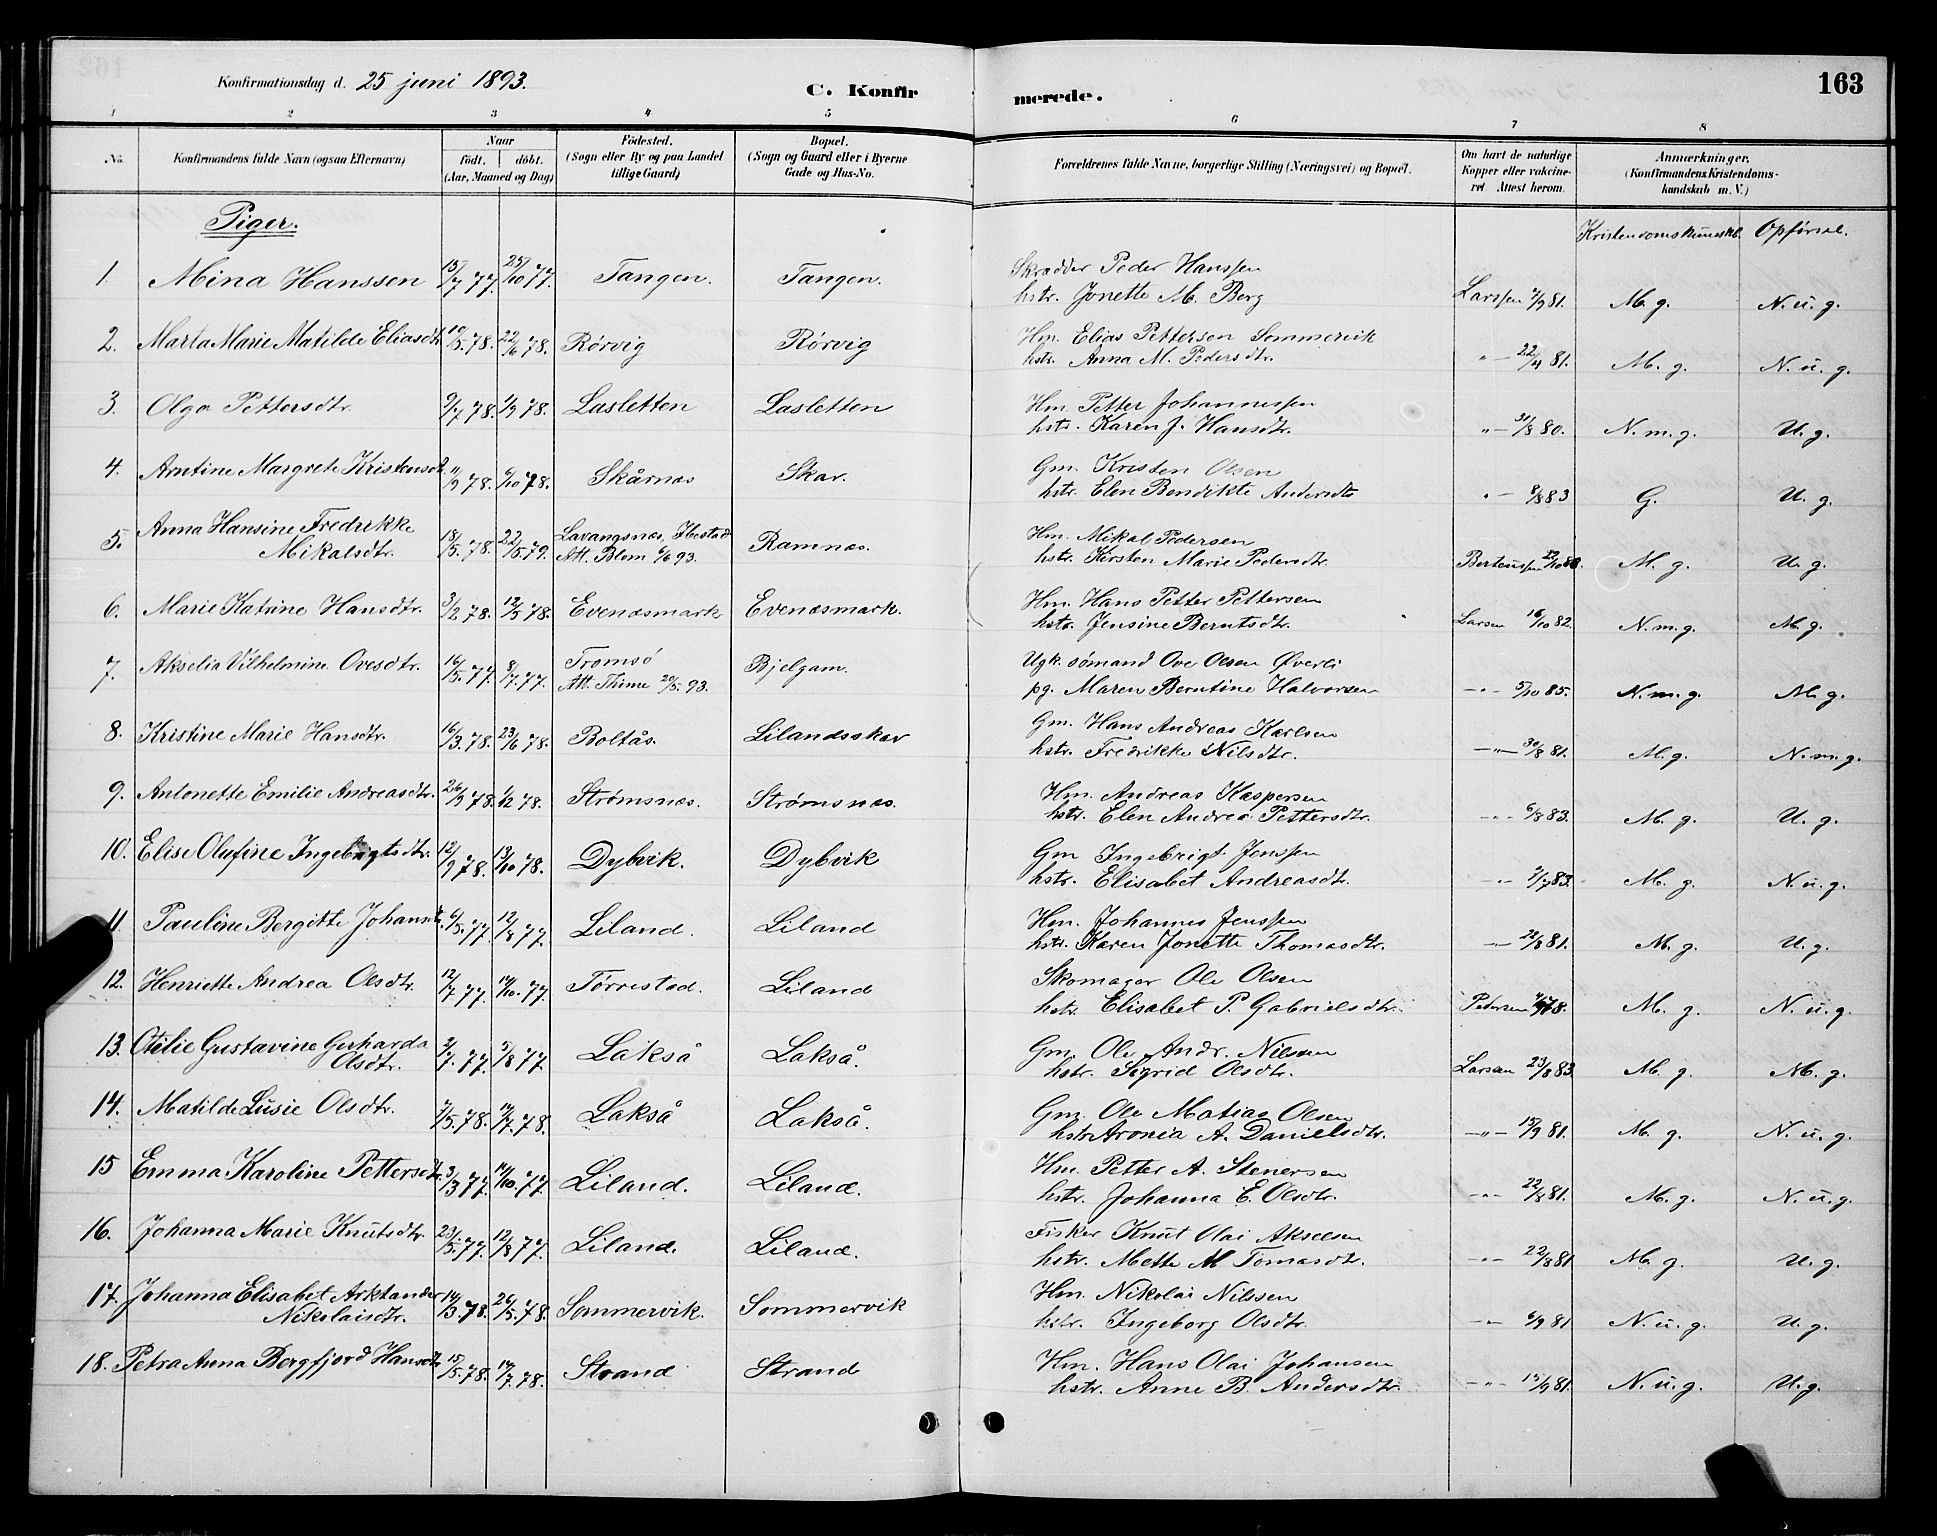 Konfirmationsdag d. 25 juni 1893. C. Konfirmerede. 163
1 2 3 4 5 6 7 8
No. Konfirmandens fulde Navn (ogsaa Efternavn) Naar födt. döbt. (Aar, Maaned og Dag) Födested. (Sogn eller By og paa Landet tillige Gaard) Bopæl. (Sogn og Gaard eller i Byerne Gade og Hus-No. Forældrenes fulde Navne, borgerlige Stilling (Næringsvei) og Bopæl. Om havt de naturlige Kopper eller vakcineret Attest herom. Anmærkninger. (Konfirmandens Kristendomskundskab m. V.)
Piger. Kristendomskundsk. Opførsel.
1. Mina Hanssen 15/7 77. 23/10 77. Tangen. Tangen. Skrædder Peder Hanssen
hstr. Jonette M. Berg Larssen /9 81. M. g. N. u. g.
2. Marta Marie Matilde Eliasdtr. 10/5 78. 22/6 78. Rörvig Rörvig Hm. Elias Pettersen Sommervik
hstr. Anna M. Pedersdtr. " 22/4 81. M. g. N. u. g.
3. Olga Pettersdtr. 9/7 78. 1/9 78. Lasletten Lasletten Hm. Petter Johannessen
hstr. Karen J. Hansdtr. " 31/8 80. N. m. g. U. g.
4. Arntine Margrete Kristensdt. 11/9 78. 6/10 78. Skårnæs Skar. Gm. Kristen Olsen
hstr. Elen Bendikte Andersdtr " 8/8 83 G. U. g.
5. Anna Hansine Fredrikke Mikalsdtr. 18/5. 78. 22/5. 79. Lavangsnæs, Ibestad Att. Blom 6/6 93. Ramnæs. Hm. Mikal Pedersen
hstr. Kirsten Marie Pedersdtr. Berteussen 22/10 80. M. g. U. g.
6. Marie Katrine Hansdtr. 3/2 78. 12/5 78. Evenæsmark Evenæsmark. Hm. Hans Petter Pettersen
hstr. Jensine Berntsdtr. Larsen 16/10 82. N. m. g. M. g.
7. Akselia Vilhelmine Ovesdtr. 16/5. 77. 8/7. 77. Tromsö Att. Thime 20/5. 93. Bjelgam. Ugk. sömand Ove Olsen Øverli
pg. Maren Berntine Halvorsen " 5/10 85. N. m. g. M. g.
8. Kristine Marie Hansdtr. 16/3. 78. 23/6 78. Boltås. Lilandsskar Gm. Hans Andreas Karlsen
hstr. Fredrikke Nilsdtr. " 30/8 81. M. g. N. m. g.
9. Antonette Emilie Andreasdtr. 26/9 78. 1/12 78. Strømsnæs. Strømsnæs. Hm. Andreas Kaspersen
hstr. Elen Andrea Pettersdtr. " 6/8 83. M. g. U. g.
10. Elise Olufine Ingebrigtsdtr. 12/9 78. 13/10 78. Dybvik. Dybvik Gm Ingebrigt Jenssen
hstr. Elisabet Andreasdtr. " /7 83. M. g. N. u. g.
11. Pauline Bergitte Johansdtr. 6/5. 77. 12/8 77. Liland. Liland Hm. Johannes Jenssen
hstr. Karen Jonette Thomasdtr. " 22/8 81. M. g. U. g.
12. Henriette Andrea Olsdtr. 12/7 77. 14/10. 77. Törrestad. Liland Skomager Ole Olsen
hstr. Elisabet P. Gabrielsdtr. Petersen 78. M. g. N. u. g.
13. Otilie Gustavine Gerharda Olsdtr. 2/7. 77. 5/8 77. Lakså Lakså. Gm. Ole Andr. Nilssen
hstr. Sigrid Olsdtr. Larsen 23/8 83. M. g. M. g.
14. Matilde Lusie Olsdtr. 7/5. 78. 14/7. 78. Lakså Lakså. Gm. Ole Matias Olsen
hstr Aronia A. Danielsdtr. " 15/9 81. M. g. N. u. g.
15 Emma Karoline Pettersdtr. 3/3 77. 14/10. 77. Liland. Liland. Hm. Petter A. Stenersen
hstr. Johanna E. Olsdtr. " 22/8 81. M. g. N. u. g.
16. Johanna Marie Knutsdtr. 23/5. 77. 12/8 77. Liland. Liland. Fisker Knut Olai Akselsen
hstr. Mette M Tomasdtr. " 22/8 81 M. g. U. g.
17. Johanna Elisabet Arktander Nikolaisdtr. 14/3. 78. 26/5. 78. Sommervik. Sommervik Hm. Nikolai Nilssen
hstr. Ingeborg Olsdtr. " 6/9 81 N. u. g. U. g.
18. Petra Anna Bergfjord Hansdtr 15/5. 78. 14/7. 78. Strand Strand Hm. Hans Olai Johansen
hstr. Anne B. Andersdtr. " 15/9 81. N. u. g. U. g.